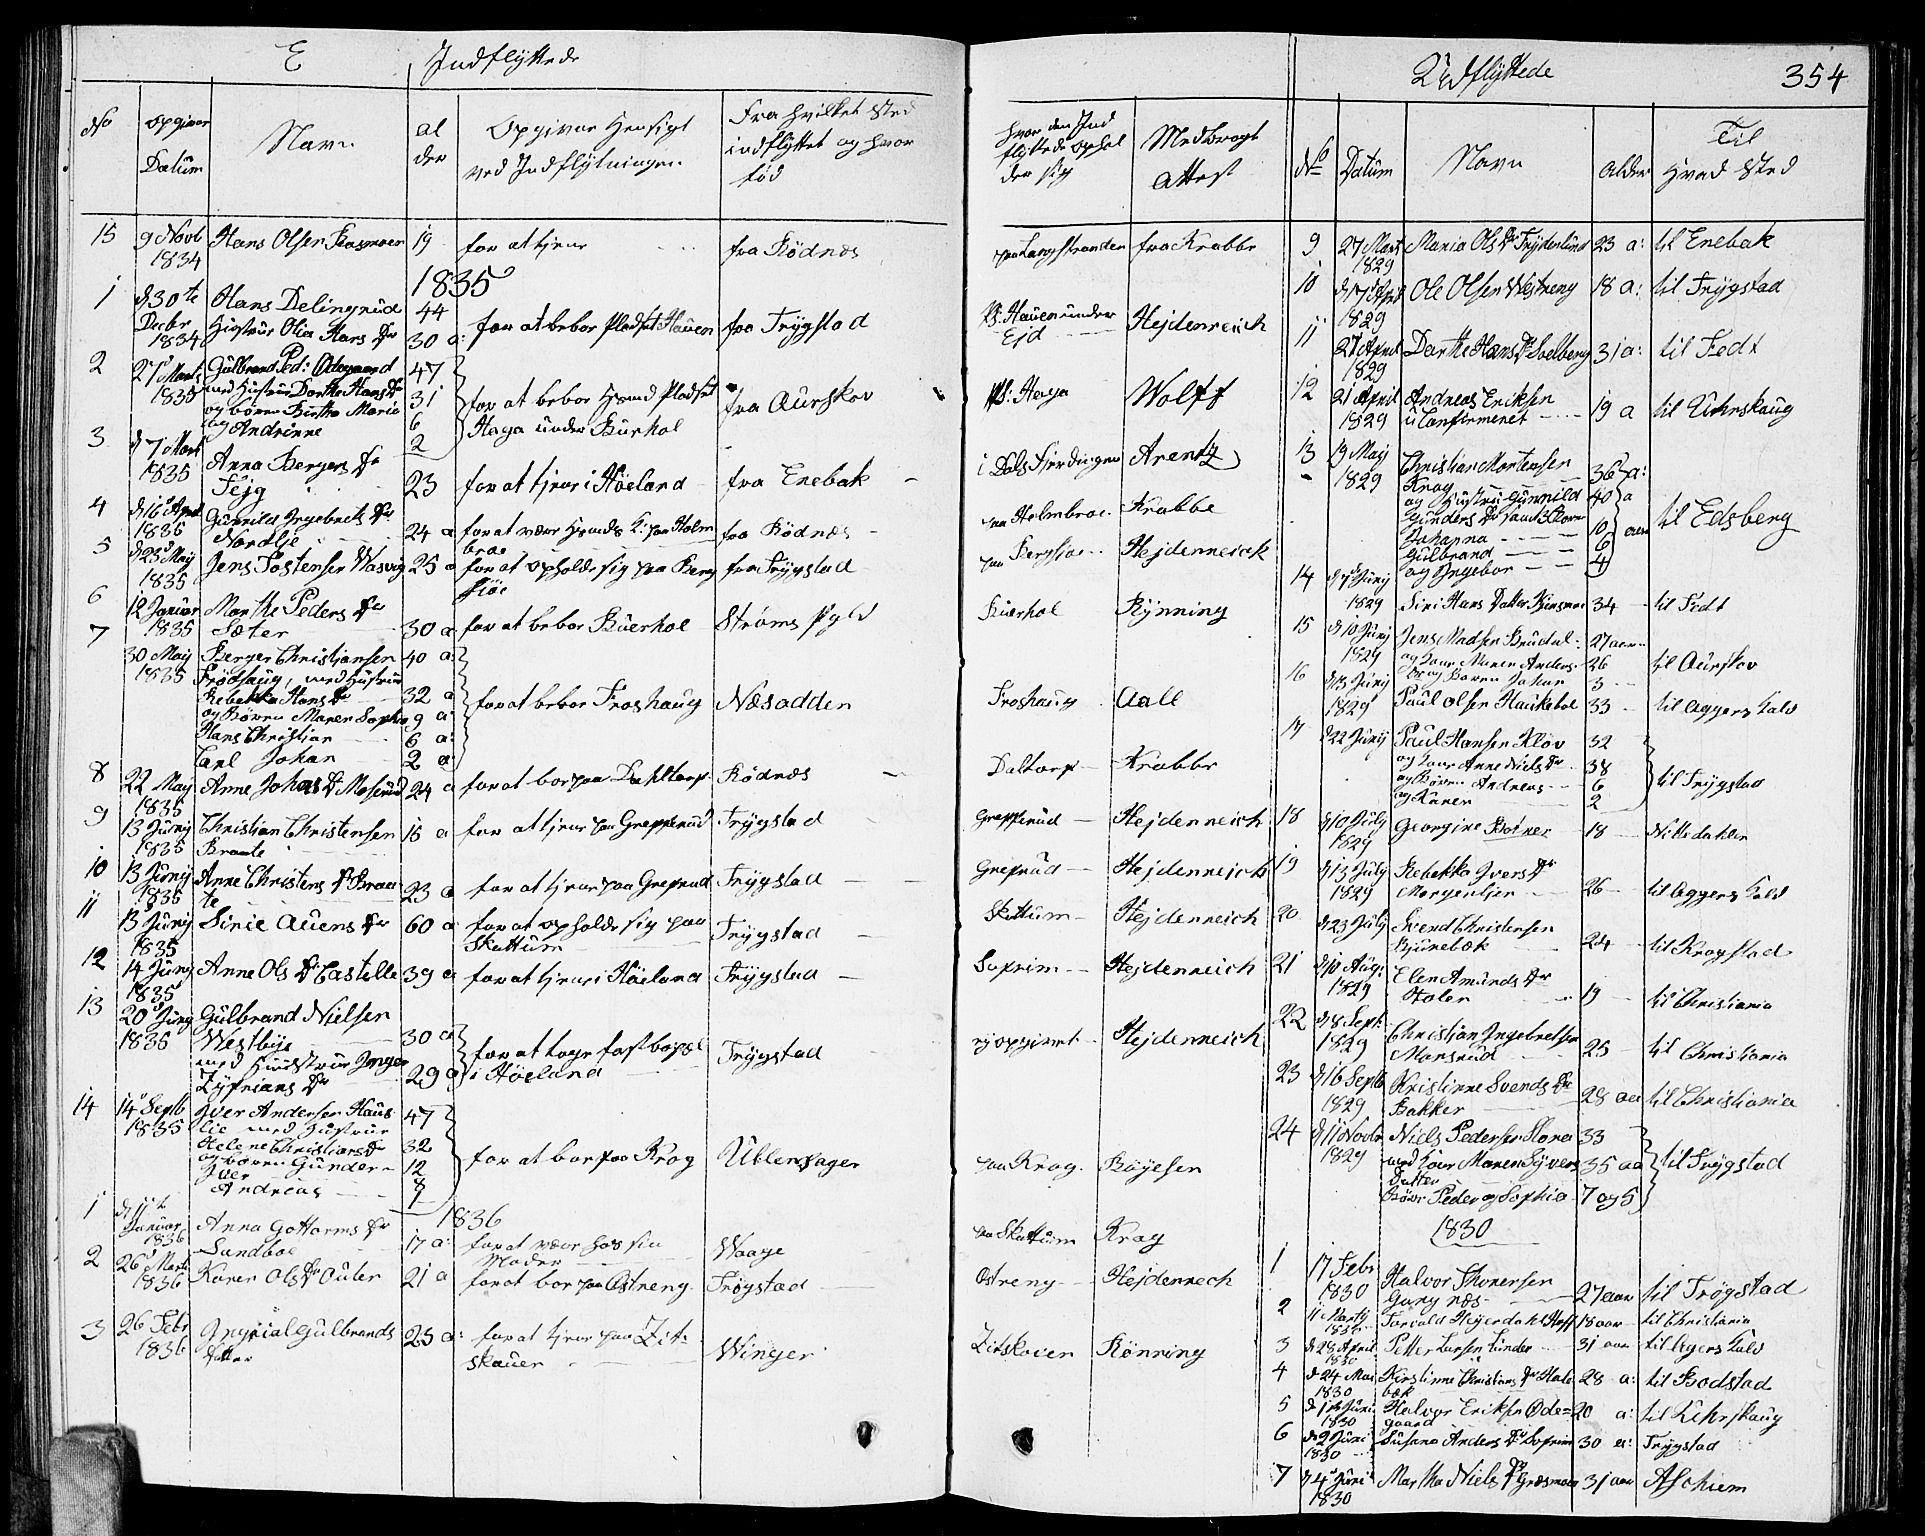 E Indflyttede
No opgiven Datum Navn al der Opgiven Hensigt ved Indflytningen Fra hvilket Sted indflyttet og hvor fød hvor den Ind flyttede ophol der sig Medbragt Attest
15 9 Novb 1834 Hans Olsen 19 for at tjene fra Rødnæs paa Langstranden fra Krabbe
1835
1 d 30te Decbr 1834 Hans Delingrud 44
Hustrue Olia Hans Dr 30 a: for at beboe Pladset Hauen fra Trygstad Pl: Hauen under Ejd Hejdenreich
2 27 Marts 1835 Gulbrand Ped: Ødegaard 47
med Hustrue Dorthe Hans Dr 31
og børn Birthe Maria 6
og Andrinne 2
for at beboe Hsmd Pladset Haga under Buerhol fra Aurskov Pl: Haga Wolff
3 d 7 Mart 1835 Anna Bergers Dr Fejg 23 for at tjene i Høeland fra Enebak i Dals Fjerdingen Arentz
4 d 16 April 1835 Gunnild Ingebrets Dr Nordlje 24 a for at være Hsmds K. paa Holm broe fra Rødnæs paa Holmbroe Krabbe
5 d 25 Maij 1835 Jens Tostensen Wasvig 25 a for at opholde sig paa Berg siøe fra Trygstad paa Bergsiøe Hejdenreich
6 12 Januar 1835 Marthe Peders Dr Sæter 30 a for at beboe Buerhol Strøms Pgld Buerhol Rynning
7 30 Maij 1835 Berger Christiansen 40 a:
Frøshaug, med Hustrue
Rebekka Hans Dr 32 a
og Børn Maren Sophie 9 a:
Hans Christian 6 a:
Carl Johan 2 a:
for at beboe Froshaug Næsodden Froshaug Aall
8 22 May 1835 Anne Johans Dr Moserud 24 a for at boe paa Dahltorp Rødnæs Daltorp Krabbe
9 13 Junij 1835 Christian Christensen Braate 15 a for at tjene paa Grepperud Trygstad Grepperud Hejdenreich
10 13 Junij 1835 Anne Christens Dr Braa te 23 a for at tjene paa Greprud Trygstad Greprud Hejdenreich
11 13 Junij 1835 Sirie Auens Dr 60 a for at opholde sig paa Skattum Trygstad Skattum Hejdenreich
12 14 Junij 1835 Anne Ols Dr Castille 39 a for at tjene i Høeland Trygstad Soprim Hejdenreich
13 20 Junij 1835 Gulbrand Nielsen
Westbye 30 a
med Huustrue Inger
Zyprians Dr 29 a
for at tage fast bopæl i Høeland Trygstad ej opgivet Hejdenreich
14 14 Septb 1835 Iver Andersen Haus 47
lie med Hustrue
Helene Christians Dr 32
og børn Gunder 12
Iver 8
Andreas
for at boe paa Krog Ullensager paa Krog Bøyesen
1836
1 d 11te Januar 1836 Anna Gottorms Dr Sandboe 17 a: for at være hos sin Moder Waage paa Skattum Krag
2 26 Marts 1836 Karen Ols Dr Outer 21 a for at boe paa Ostreng Trøgstad Ostreng Hejdenreich
3 26 Febr 1836 Ingerial Gulbrands Datter 23 a: for at tjene paa Zit skauen Winger Zitskoven Rønning
Udflyttede 354
No Datum Navn Alder Til hvad Sted
9 27 Mart 1829 Maria Ols Dr Frydenlund 23 a: til Enebak
10 d 17 April 1829 Ole Olsen Westreng 18 a: til Trygstad
11 21 April 1829 Dorthe Hans Dr Solberg 31 a: til Fedt
12 21 April 1829 Andreas Eriksen uConfirmeret 19 a til Uhrskaug
13 19 Maij 1829 Christian Mortensen
Krog 36 a:
og Hustru Gunnild 40 a
Gunders Dr samt Børn
Johanna 10
Gulbrand 6
og Ingebor 4
aar til Edsberg
14 d 7 Junij 1829 Siri Hans Datter 34 til Fedt
15 d 10 Junij 1829 Jens Madsen Brudal 27 aar
og Kone Maren Anders 26
Dr og Barn Johan 3
til Aurskov
16 d 13 Junij 1829 Paul Olsen Haukeboe 33 til Aggers Sald
17 d 22 Junij Paul Hansen Kløv 32
og Kone Anne Niels Dr 38
og Børn Andreas 6
og Karen 2
til Trygstad
18 d 10 Julij 1829 Georgine 18 Nittedahlen
19 d 13 July 1829 Rebekka Ivers Dr Morgenlien 26 til Aggers Sald
20 d 23 Julij Svend Christensen Bjunebæk 24 til Kragstad
21 d 10 Aug: 1829 Elen Amunds Dr Holen 19 til Christiania
22 d 8 Sept: 1829 Christian Ingebretsen Monsrud 25 til Christiania
23 d 16 Septb 1829 Kristinne Svends Dr Bakker 28 aar til Christiania
24 d 11 Novbr 1829 Niels Pedersen 33
med Kone Maren Syvers 35 aar
Datter
Børn Peder og Sophia 7 og 5
til Trygstad
1830
1 17 Febr 1830 Halvor Thoresen Gangnæs 27 aar til Trøgstad
2 11 Martij 1830 Torvald Hejerdahl Hoff 18 aar til Christiania
3 d 28 April 1830 Petter Larsen Lunder 31 aar til Agers Sald
4 d 24 Mai 1830 Kirstinne Christians Dr Hole bæk 28 a: til Bodstad
5 d 1 Juni 1830 Halvor Eriksen Øde= gaard 20 a: til Uhrskaug
6 d 9 Juni 1830 Susana Anders Dr Soprim 30 a: Trygstad
7 d 4 Juni 1830 Martha Niels Dr Græsmoen 31 aar Aschiem